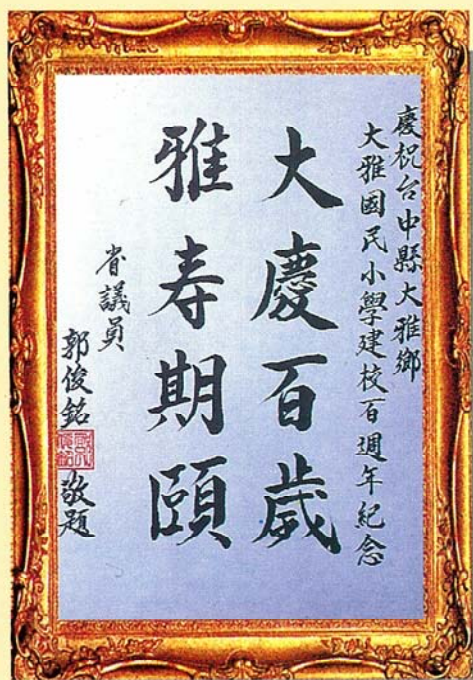 慶祝台中縣大雅鄉
大雅國民小學建校百週年紀念
大慶百歲
雅寿期頤
省議員
郭俊銘敬題